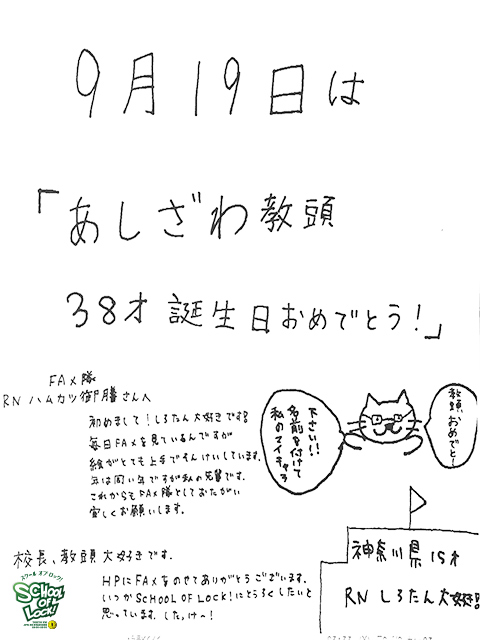 9月19日は
「あしざわ教頭
38才 誕生日おめでとう!」
FAX隊
RN ハムカツ御膳さんへ
初めまして!しろたん大好きです
毎日FAXを見ているんですが
絵がとても上手でそんけいしています。
年は同い年ですが私の先輩です。
これからもFAX隊としておたがい
宜しくお願いします。
私のマイキャラ
名前を付けて
下さい!!
教頭、
おめでと〜
校長、教頭 大好きです。
HPにFAXをのせてありがとうございます。
いつかSCHOOL OF LOCK!にとうろくしたいと
思っています。したっけ〜!
神奈川県 15才
RN しろたん大好き!
スクール オブ ロック!
SCHOOL
OF
LOCK!